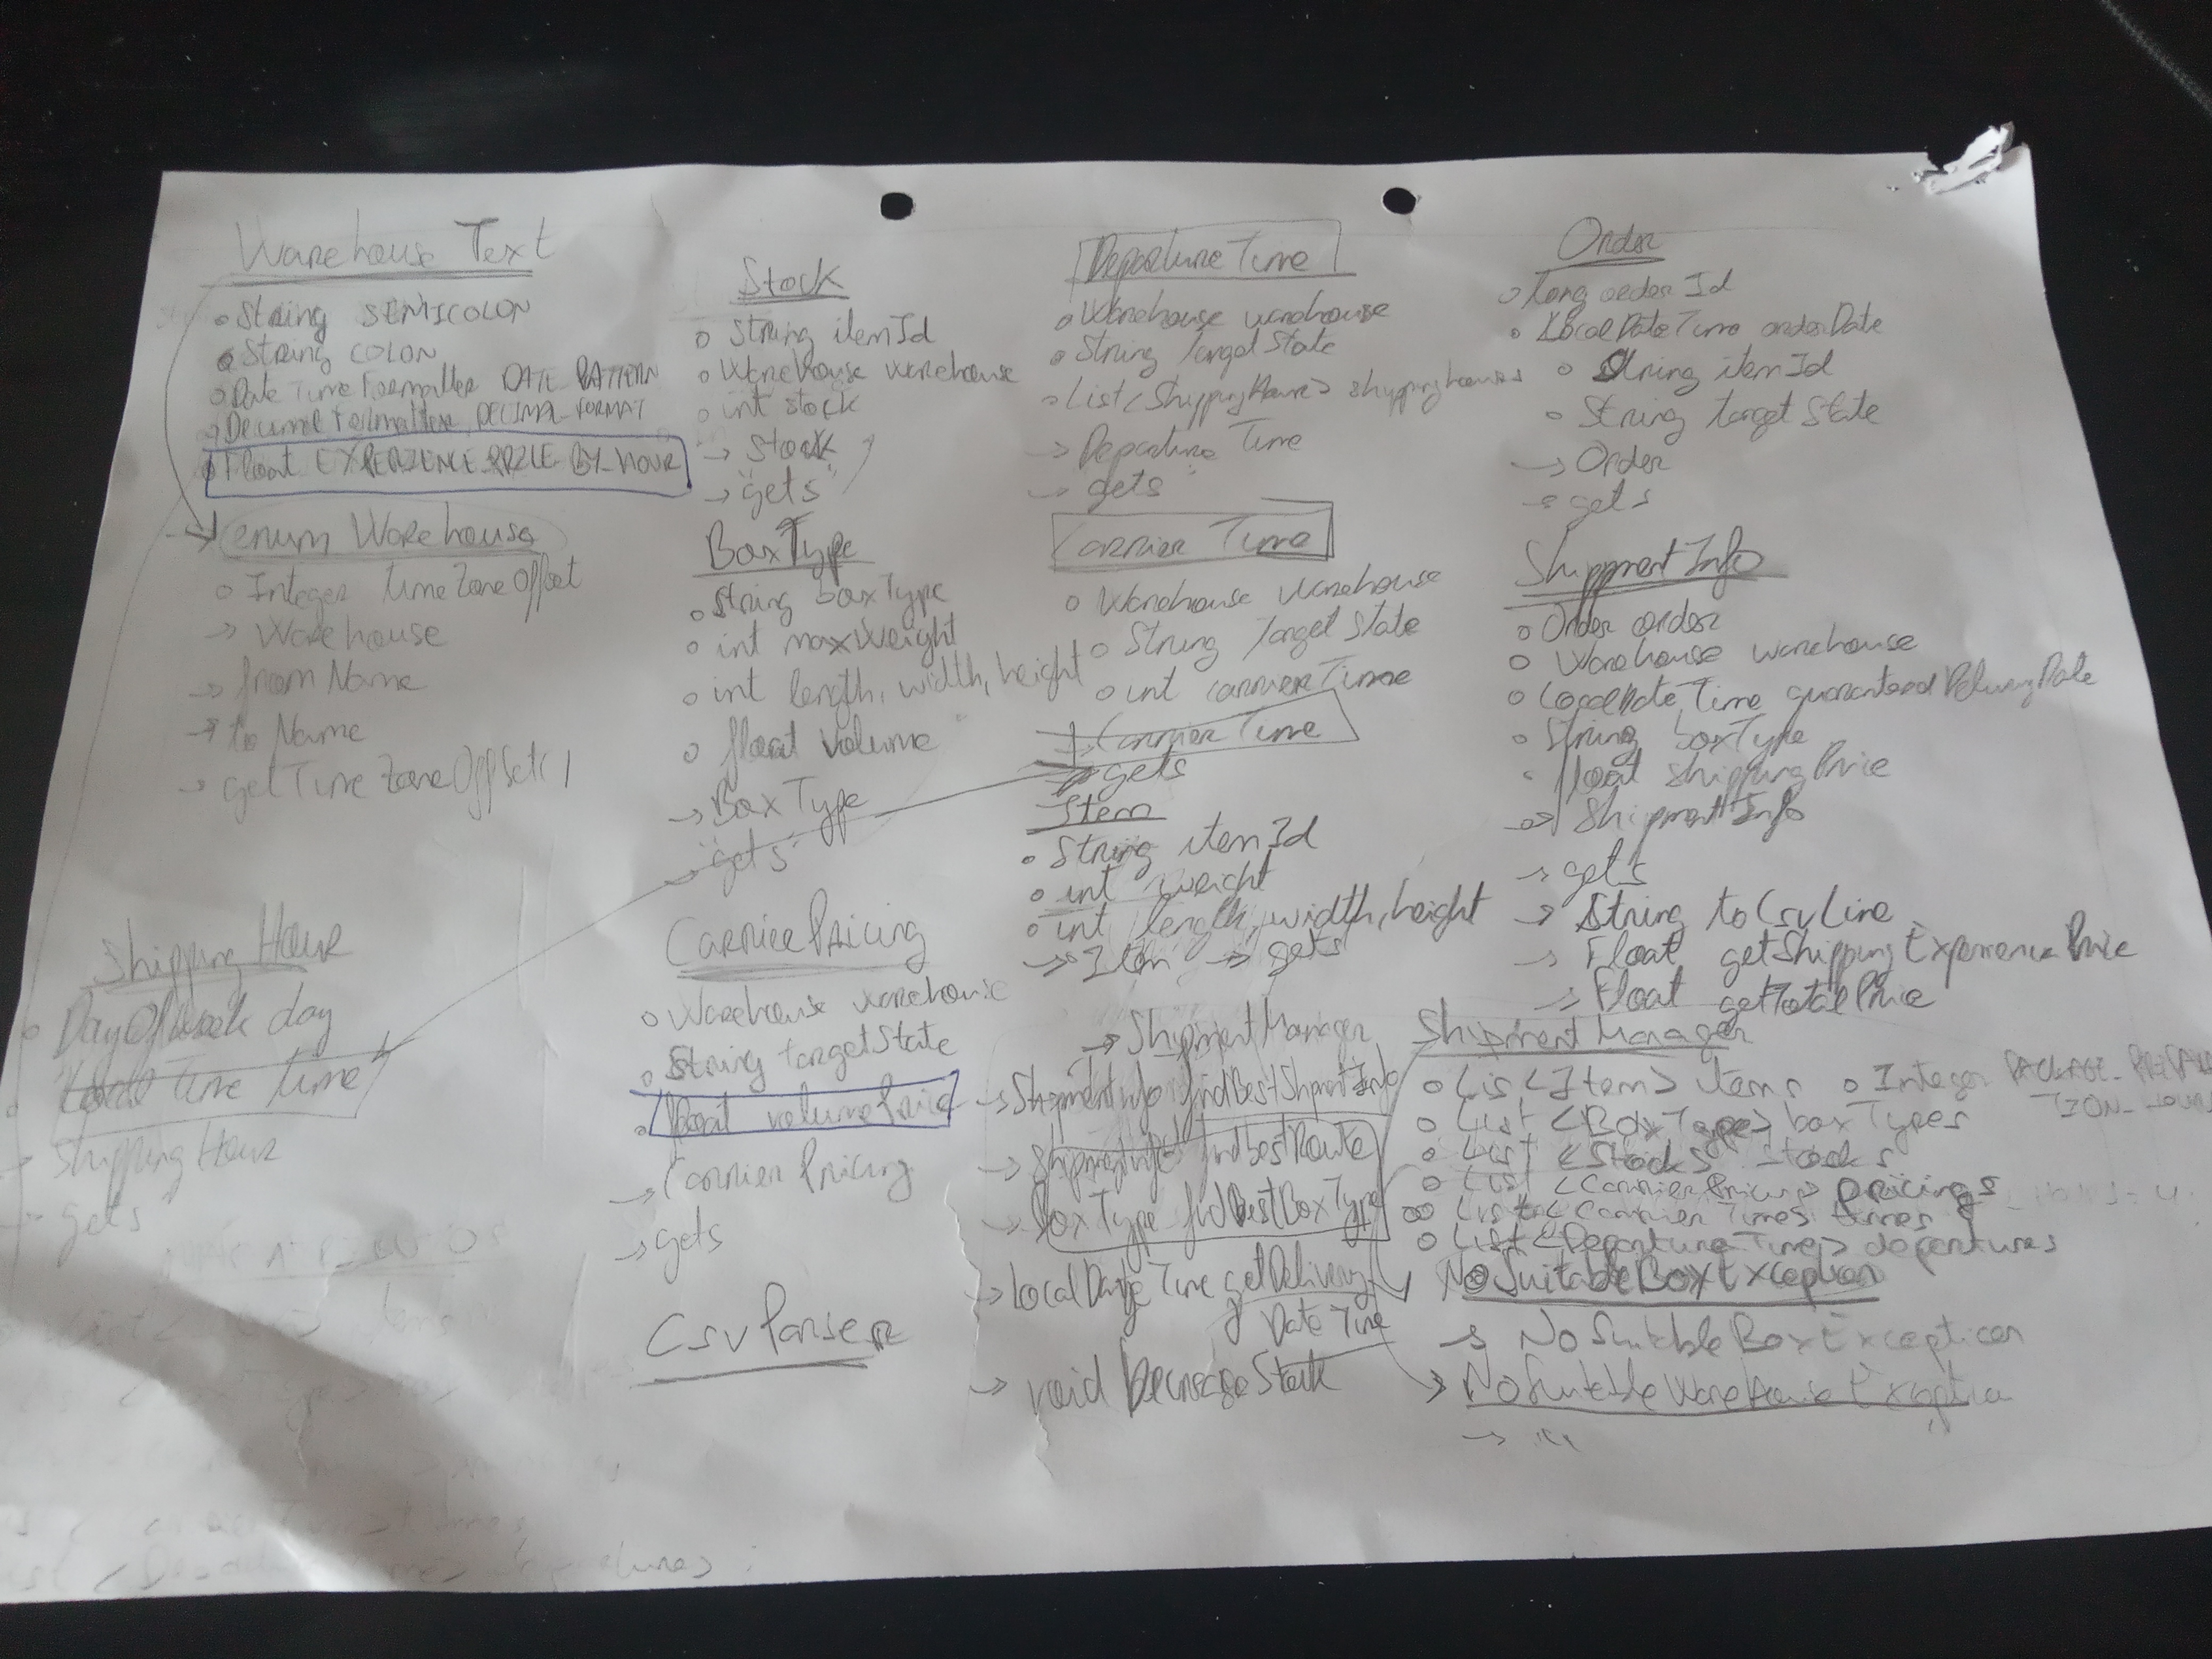 Warehouse Text
String SEMICOLON
String COLON
DateTimeFormatter DATE_PATTERN
Decimal Formatter DECIMAL_FORMAT
Float EXPERIENCE_PRICE_BY_HOUR
enum Warehouse
Integer timeZoneOffset
→ Warehouse
→ fromName
→ to Name
→ getTimeZoneOffset()
Shipping Hour
DayOfWeek day
Local Time time
Shipping Hour
gets
Stock
String itemId
Warehouse warehouse
int stock
→ Stock
→ "gets"
BoxType
String boxType
int maxWeight
int length, width, height
float volume
→ BoxType
→ "gets"
CarrierPricing
Warehouse warehouse
String targetState
float volumePrice
→ CarrierPricing
→ gets
CsvParser
DepartureTime
Warehouse warehouse
String targetState
List<ShippingHour> shippinghours
→ Departure Time
→ gets
Carrier Time
Warehouse warehouse
String targetState
int carrierTime
→ CarrierTime
→ gets
Item
String itemId
int weight
int length, width, height
→ Item → gets
→ ShipmentManager
→ ShipmentInfo findBestShipmentInfo
→ ShipmentInfo findbestRoute
→ BoxType findBestBoxType
→ LocalDateTime getDelivery
DateTime
→ void DecreaseStock
Order
long orderId
LocalDateTime orderDate
String itemId
String targetState
→ Order
→ gets
ShippmentInfo
Order order
Warehouse warehouse
LocalDateTime guaranteedDeliveryDate
String boxType
float shippingPrice
→ ShipmentInfo
→ gets
→ String toCsvLine
→ Float getShippingExperiencePrice
→ Float getTotalPrice
Shipment Manager
List<Item> items
Integer
List<BoxType> boxTypes
List<Stock> stocks
List<CarrierPricing> pricings
List<CarrierTime> times
List<DepartureTime> departures
NoSuitableBoxException
→ NoSuitableBoxException
→ NoSuitableWarehouseException
→ "